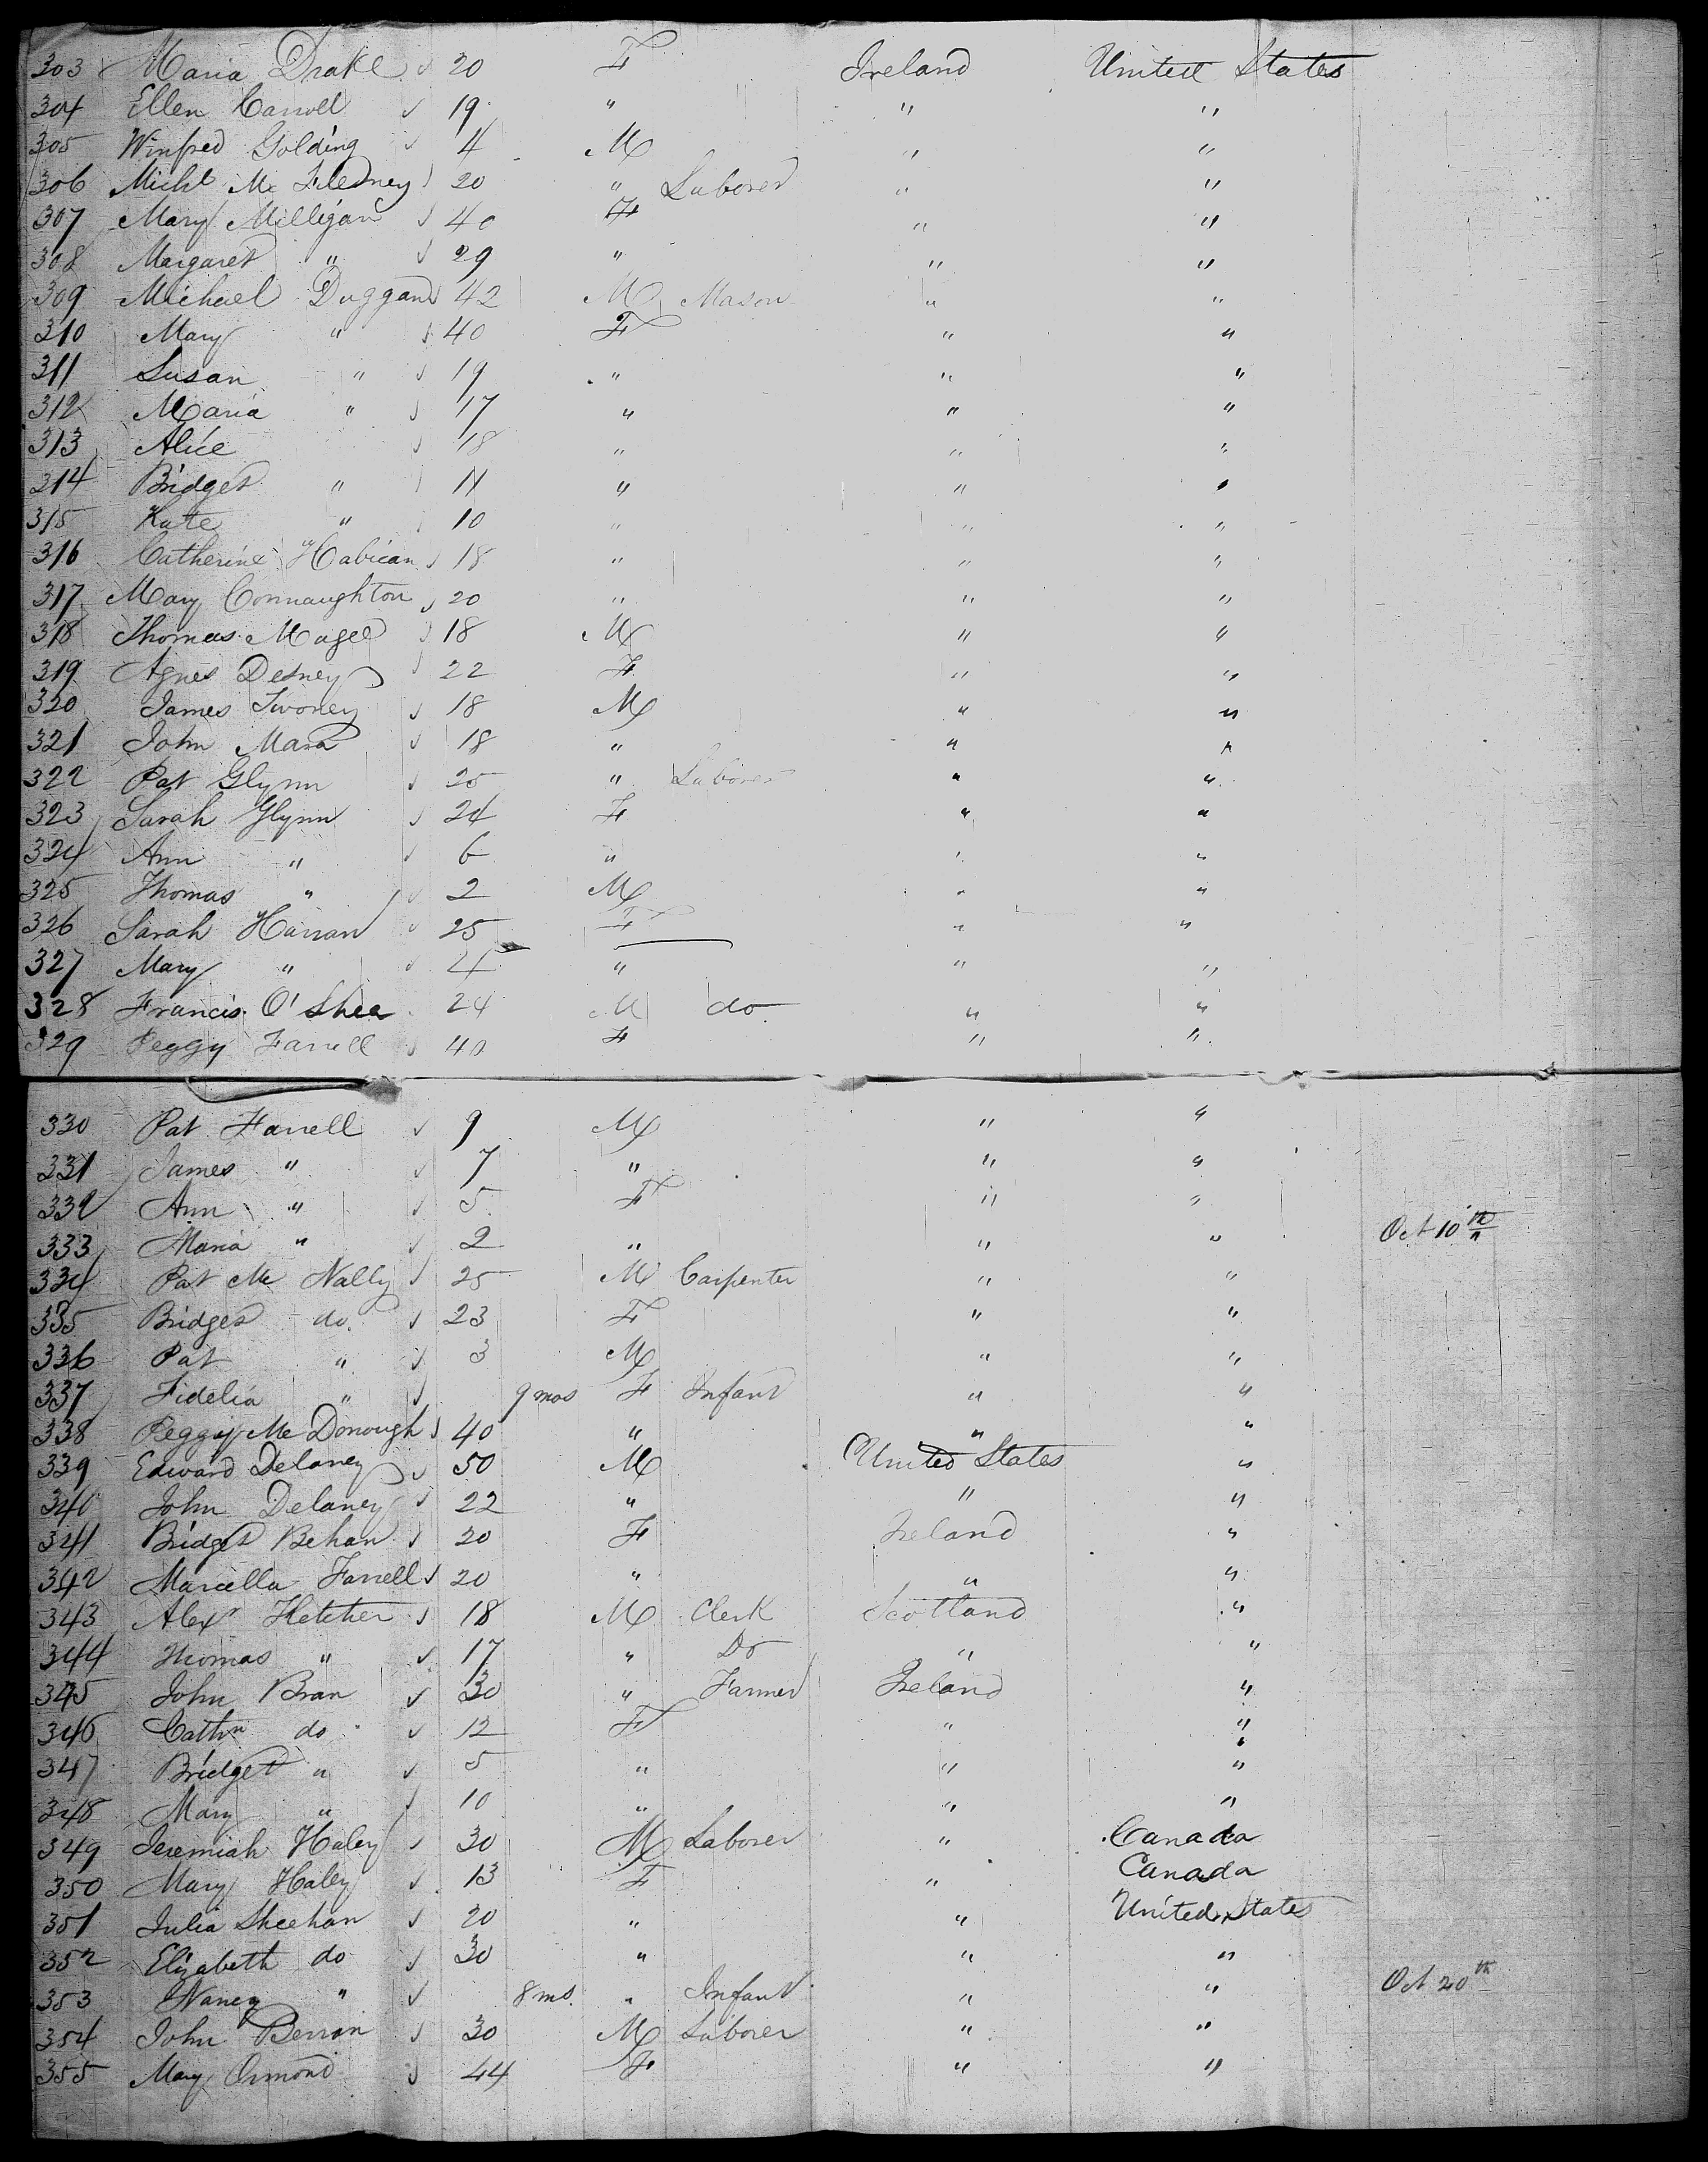 303 Maria Drake √ 20 F Ireland United States
304 Ellen Carroll √ 19 " " "
305 Winfred Golding √ 4 M " "
306 Michl Mc √ 20 " Laborer " "
307 Mary Milligan √ 40 F " "
308 Margaret " √ 29 " " "
309 Michael Duggan √ 42 M Mason " "
310 Mary " √ 40 F " "
311 Susan " √ 19 " " "
312 Maria " √ 17 " " "
313 Alice √ 18 " " "
314 Bridget " √ 11 " " "
315 Kate " √ 10 " " "
316 Catherine Habican √ 18 " " "
317 Mary Connaughton √ 20 " " "
318 Thomas Magee √ 18 M " "
319 Agnes Desney √ 22 F " "
320 James Twomey √ 18 M " "
321 John Mara √ 18 " " "
322 Pat Glynn √ 25 " Laborer " "
323 Sarah Glynn √ 24 F " "
324 Ann " √ 6 " " "
325 Thomas " √ 2 M " "
326 Sarah Harran √ 25 F " "
327 Mary " √ 4 " " "
328 Francis O'Shea 24 M do " "
329 Peggy Farrell √ 40 F " "
330 Pat Farrell √ 9 M " "
331 James " √ 7 " " "
332 Ann " √ 5 F " "
333 Maria " √ 2 " " " Oct 10th
334 Pat Mc Nally √ 25 M Carpenter " "
335 Bridget do √ 23 F " "
336 Pat " √ 3 M " "
337 Fidelia " √ 9 mos F Infant " "
338 Peggy Mc Donough √ 40 " " "
339 Edward Delaney √ 50 M United States "
340 John Delaney √ 22 " " "
341 Bridget Behan √ 20 F Ireland "
342 Marcella Farrell √ 20 " " "
343 Alexr Fletcher √ 18 M Clerk Scotland "
344 Thomas " √ 17 " Do " "
345 John Bran √ 30 " Farmer Ireland "
346 Cathn do √ 12 F " "
347 Bridget " √ 5 " " "
348 Mary " √ 10 " " "
349 Jeremiah Haley √ 30 M Laborer " Canada
350 Mary Haley √ 13 F " Canada
351 Julia Sheehan √ 20 " " United States
352 Elizabeth do √ 30 " " "
353 Nancy " √ 8 ms. " Infant " " Oct 20th
354 John Berran √ 30 M Laborer " "
355 Mary Ormond √ 44 F " "